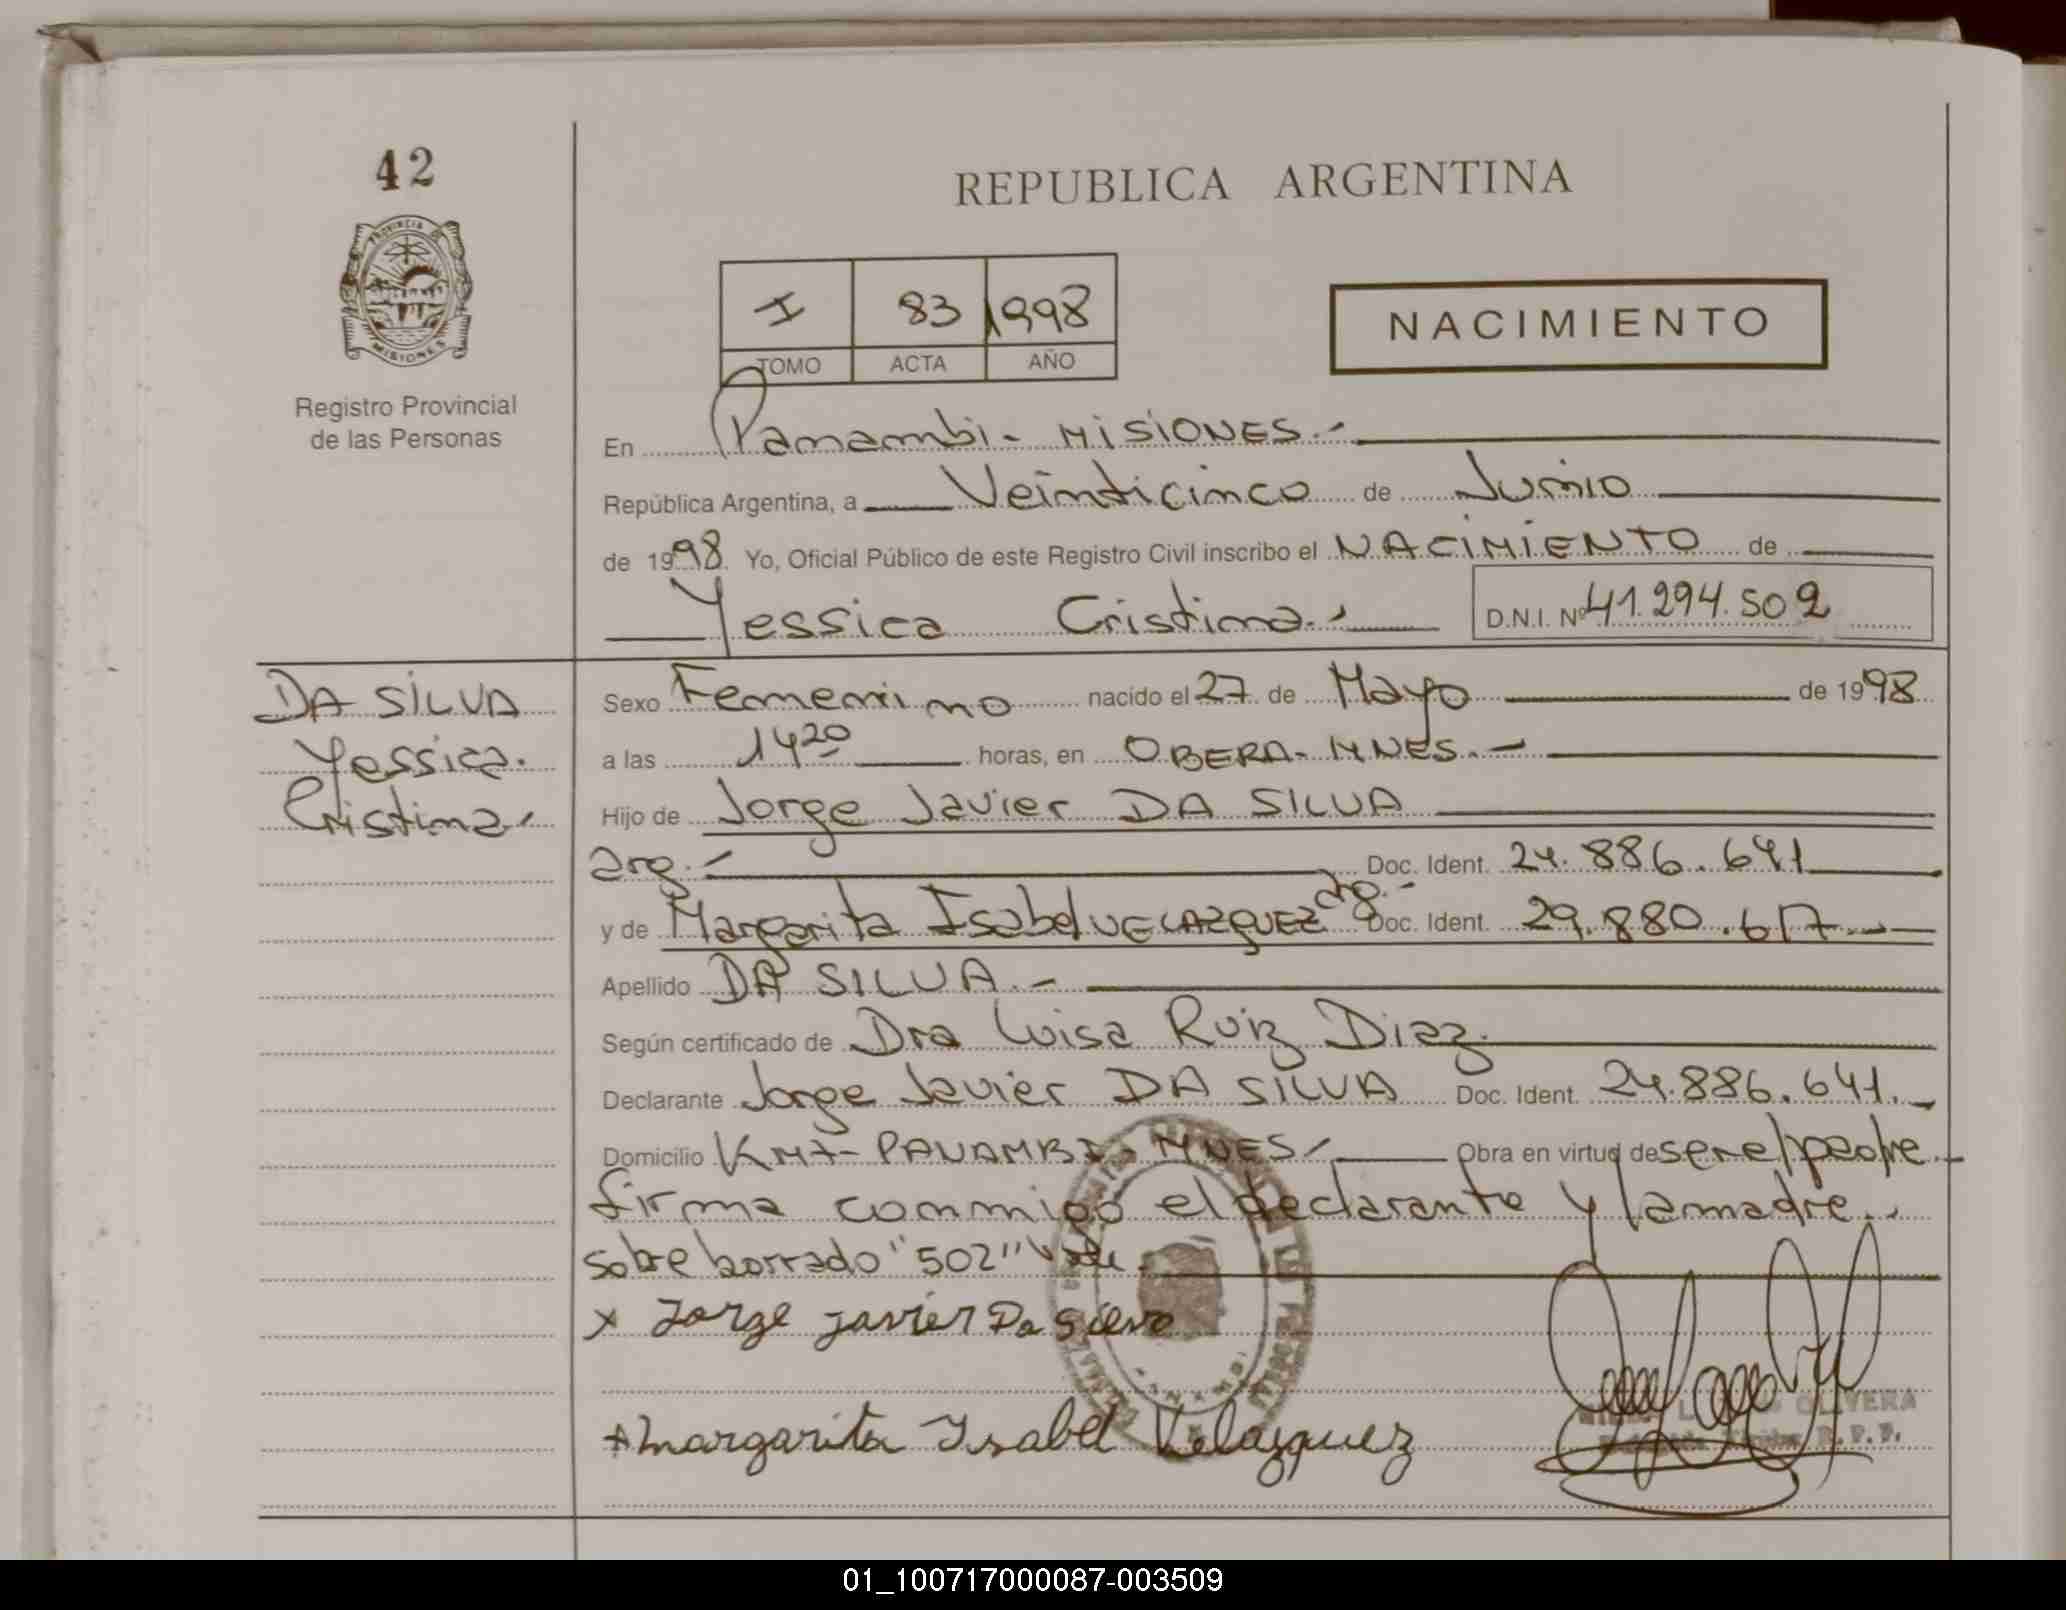 42
REPUBLICA ARGENTINA
PROVINCIA DE
MISIONES
Registro Provincial
de las Personas
I 83 1998
TOMO ACTA AÑO
NACIMIENTO
En Panambi - MISIONES.-
República Argentina, a Veinticinco de Junio
de 1998. Yo, Oficial Público de este Registro Civil inscribo el NACIMIENTO de
Yessica Cristina.- D.N.I. Nº 41.294.502
DA SILVA
Yessica.
Cristina.-
Sexo Femenino nacido el 27 de Mayo de 1998
a las 14 20 horas, en OBERA - MNES.-
Hijo de Jorge Javier DA SILVA
arg.- Doc. Ident. 24.886.641
y de Margarita Isabel VELAZQUEZ arg.- Doc. Ident. 29.880.617.-
Apellido DA SILVA.-
Según certificado de Dra Luisa Ruiz Diaz.
Declarante Jorge Javier DA SILVA Doc. Ident. 24.886.641.-
Domicilio KM7- PANAMBI - MNES- Obra en virtud de ser el padre
firma conmigo el declarante y la madre.-
sobre borrado "502" Vale.-
x Jorge javier Da Silva
x Margarita Ysabel Velazquez
OLIVERA
R.P.P.
01_100717000087-003509